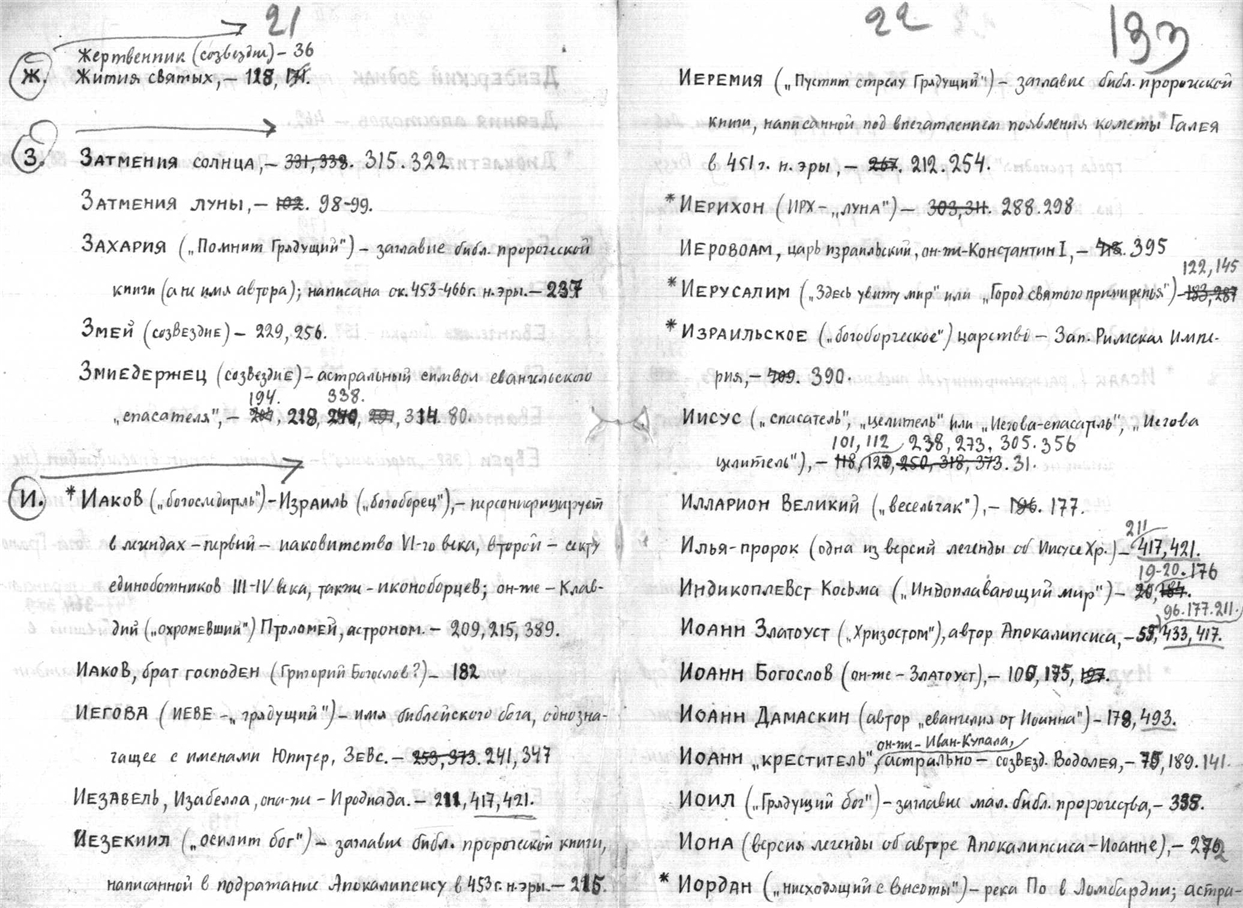 21
Жертвенник (созвездие) – 36
Ж. Жития святых, – 128, 171.
З. Затмения солнца, – 331, 338. 315. 322
Затмения луны, – 102. 98-99.
Захария („Помнит Грядущий") – заглавие библ. пророческой
книги (а не имя автора); написана ок. 453-466 г. н. эры. – 237
Змей (созвездие) – 229, 256.
Змиедержец (созвездие) – астральный символ евангельского
194. 338.
„спасателя", – 218, 314. 80.
И. * Иаков („богоследитель") – Израиль („богоборец"), – персонифицирует
в легендах – первый – иаковитство VI-го века, второй – секту
единобожников III-IV века, также – иконоборцев; он-же – Клав-
дий („охромевший") Птоломей, астроном. – 209, 215, 389.
Иаков, брат господен (Григорий Богослов?) – 182
Иегова (ИЕВЕ – „грядущий") – имя библейского бога, однозна-
чащее с именами Юпитер, Зевс. – 253, 373. 241, 347
Иезавель, Изабелла, она-же – Иродиада. – 211, 417, 421.
Иезекиил („осилит бог") – заглавие библ. пророческой книги,
написанной в подражание Апокалипсису в 453 г. н. эры. – 215.
22
133
Иеремия („Пустит стрелу Грядущий") – заглавие библ. пророческой
книги, написанной под впечатлением появления кометы Галея
в 451 г. н. эры, – 267. 212. 254.
* Иерихон (ИРХ – „луна") – 303, 311. 288. 298
Иеровоам, царь израильский, он-же – Константин I, – 395
122, 145
* Иерусалим („Здесь увижу мир" или „Город святого примиренья") – 183, 287
* Израильское („богоборческое") царство – Зап. Римская Импе-
рия, – 409. 390.
Иисус („спасатель", „целитель" или „Иегова-спасатель", „Иегова
101, 112 238, 273. 305. 356
целитель"), – 118, 120, 250, 318, 373. 31.
Илларион Великий („весельчак"), – 196. 177.
211
Илья-пророк (одна из версий легенды об Иисусе Хр.) – 417, 421.
19-20. 176
Индикоплевст Косьма („Индоплавающий мир") – 20, 184.
96. 177. 211.
Иоанн Златоуст („Хризостом"), автор Апокалипсиса, – 55, 433, 417.
Иоанн Богослов (он-же – Златоуст), – 100, 175, 197.
Иоанн Дамаскин (автор „евангелия от Иоанна") – 178, 493.
он-же – Иван-Купала,
Иоанн „креститель", астрально – созвезд. Водолея, – 75, 189. 141.
Иоил („Грядущий бог") – заглавие мал. библ. пророчества, – 335.
Иона (версия легенды об авторе Апокалипсиса – Иоанне), – 272
* Иордан („нисходящий с высоты") – река По в Ломбардии; астра-